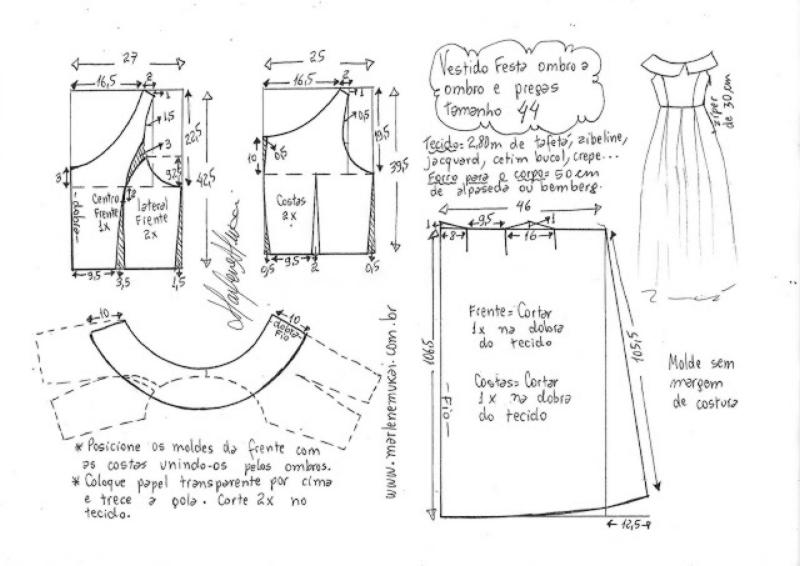 27
16,5
2
1
1,5
22,5
3
9,5
3
42,5
Centro
Frente
1x
lateral
Frente
2x
2
-dobra-
9,5
3,5
1,5
25
16,5
2
1
0,5
19,5
10
0,5
39,5
Costas
2x
0,5
9,5
2
0,5
Marlene Mukai
Vestido Festa ombro a
ombro e pregas
Tamanho 44
Tecido= 2,80m de tafetá, zibeline,
jacquard, cetim bucol, crepe...
Forro para o corpo= 50cm
de alpaseda ou bemberg.
zíper
de 30,cm
46
1
9,5
1
8
16
1065
105,5
Frente= Cortar
1x na dobra
do tecido
Costas= Cortar
1x na dobra
do tecido
-Fio-
12,5
Molde sem
margem
de costura
10
10
-dobra-
Fio
www.marlenemukai.com.br
* Posicione os moldes da frente com
as costas unindo-os pelos ombros.
* Coloque papel transparente por cima
e trece a gola. Corte 2x no
tecido.